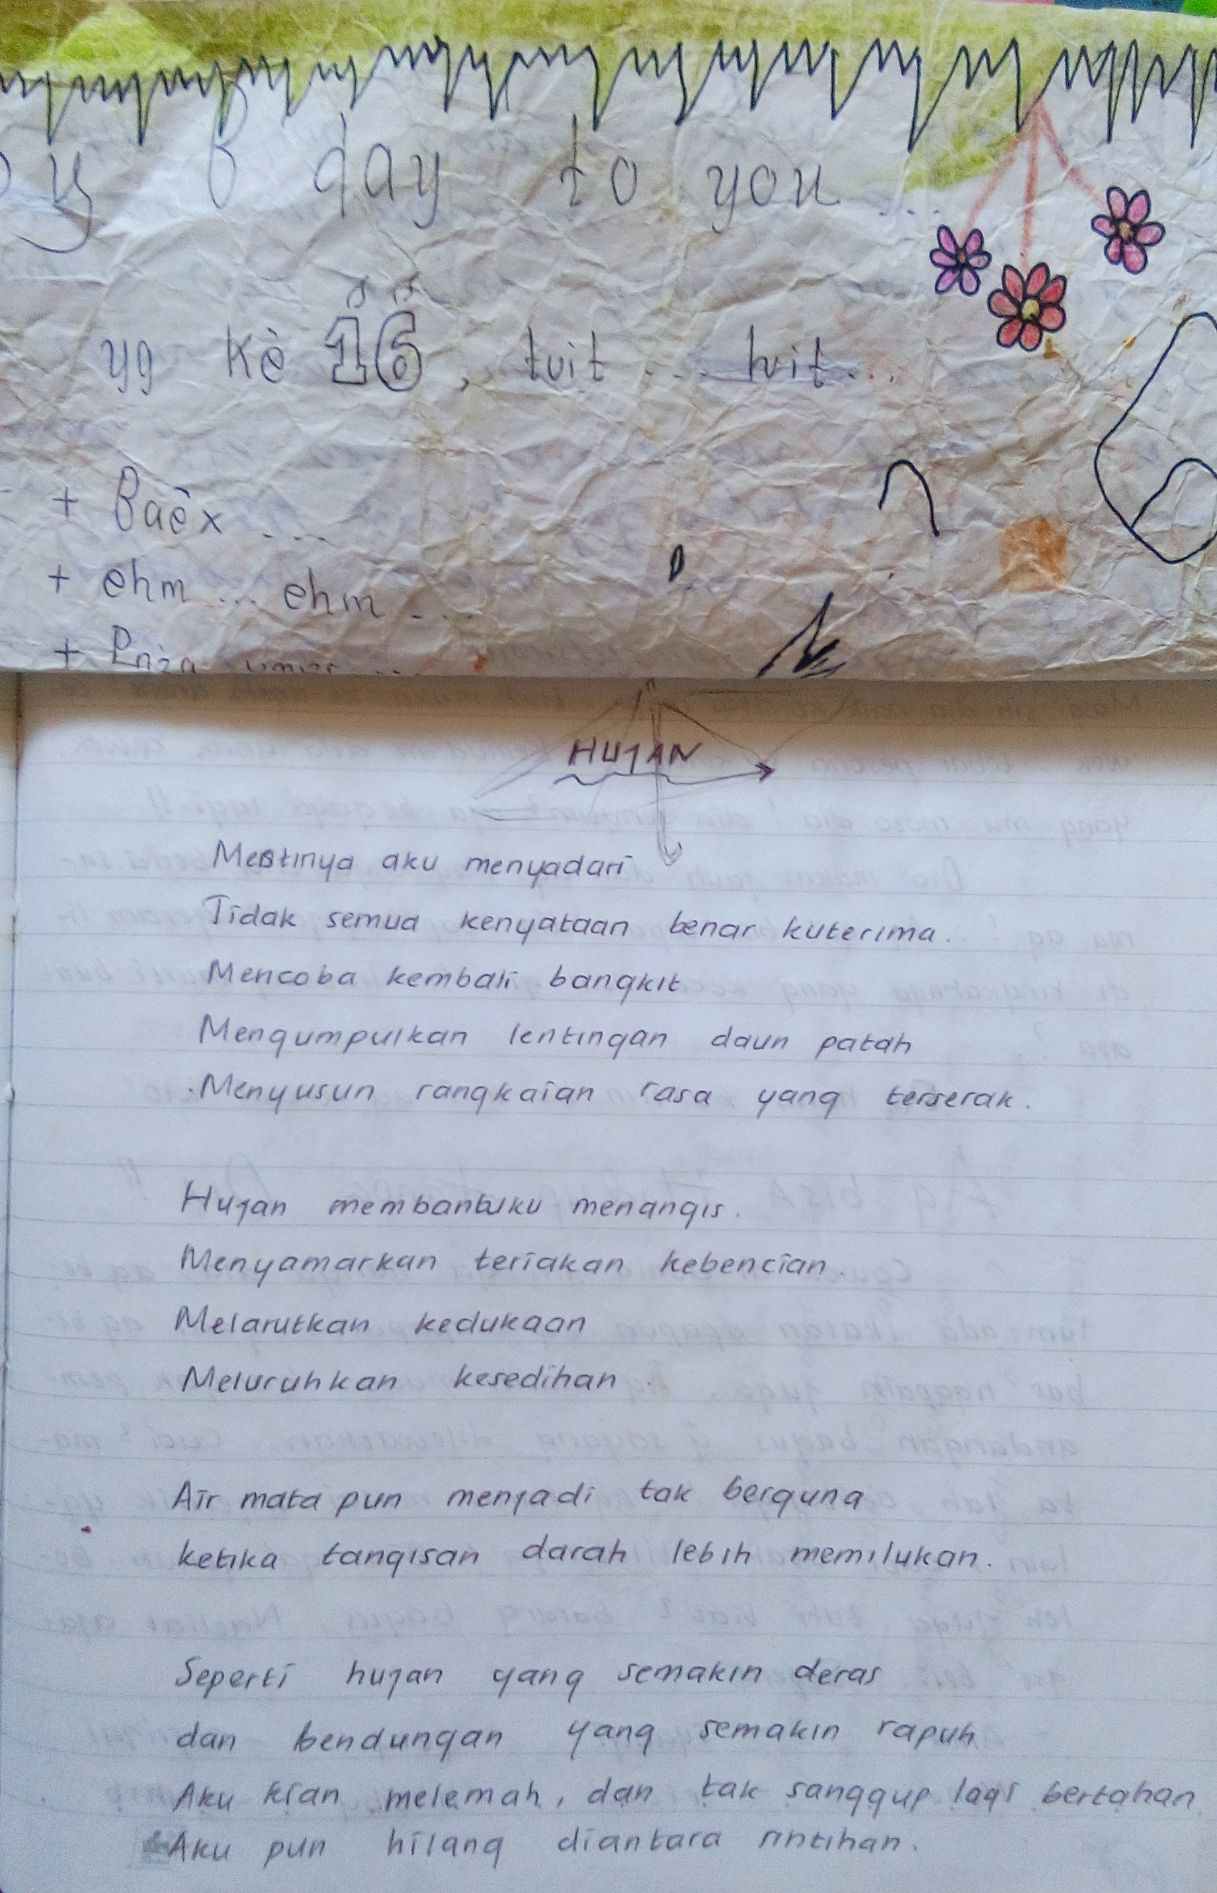 y B day to you ...
yg kè 16, tuit ... tuit ...
+ Baêx ...
+ ehm ... ehm ...
+
HUJAN
Mestinya aku menyadari
Tidak semua kenyataan benar kuterima.
Mencoba kembali bangkit
Mengumpulkan lentingan daun patah
Menyusun rangkaian rasa yang terserak.
Hujan membantuku menangis.
Menyamarkan teriakan kebencian.
Melarutkan kedukaan
Meluruhkan kesedihan.
Air mata pun menjadi tak berguna
ketika tangisan darah lebih memilukan.
Seperti hujan yang semakin deras
dan bendungan yang semakin rapuh
Aku kian melemah, dan tak sanggup lagi bertahan
Aku pun hilang diantara rintihan.